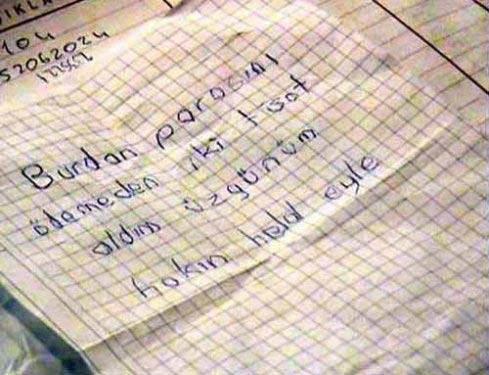 IKLA
104
52062024
Burdan parasını
ödemeden iki tişot
aldım üzgünüm
hakın helal eyle